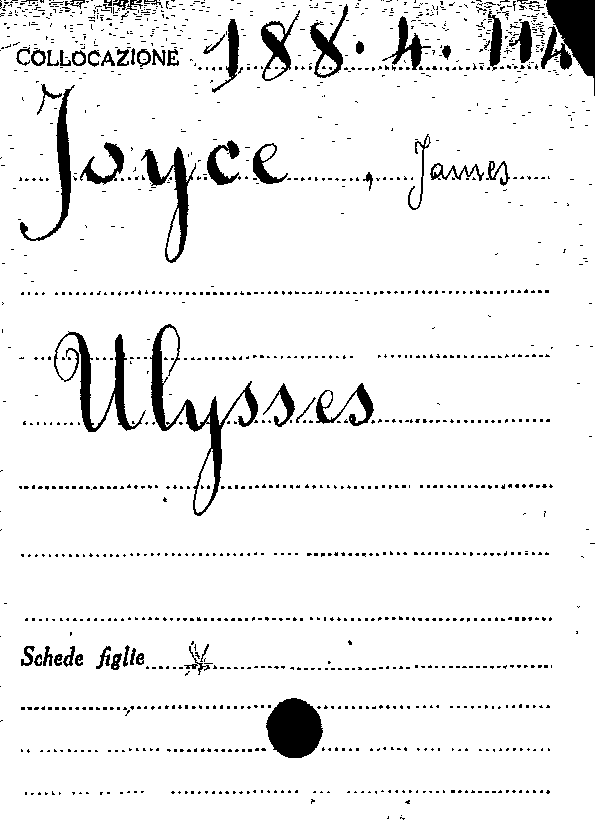 COLLOCAZIONE 188.4.114
Joyce, James
Ulysses
Schede figlie